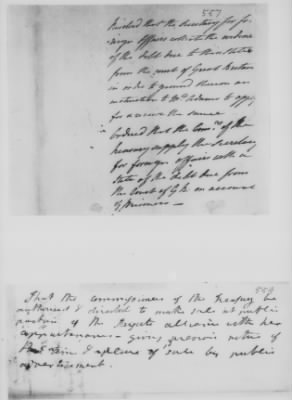 557
Resolved that the Secretary for fo-
reign Affairs collect the evidence
of the debt due to the United States
from the court of Great Britain
in order to ground thereon an
instruction to Mr Adams to app
for &
Ordered that the Comrs of the
treasury supply the Secretary
for foreign affairs with a
State of the debt due from
the Court of G B on account
of prisoners —
559
That the commissioners of the Treasury be
authorised & directed to make sale at public
auction of the frigate alliance with her
appurtenances — giving previous notice of
the time & place of sale by public
advertisement.